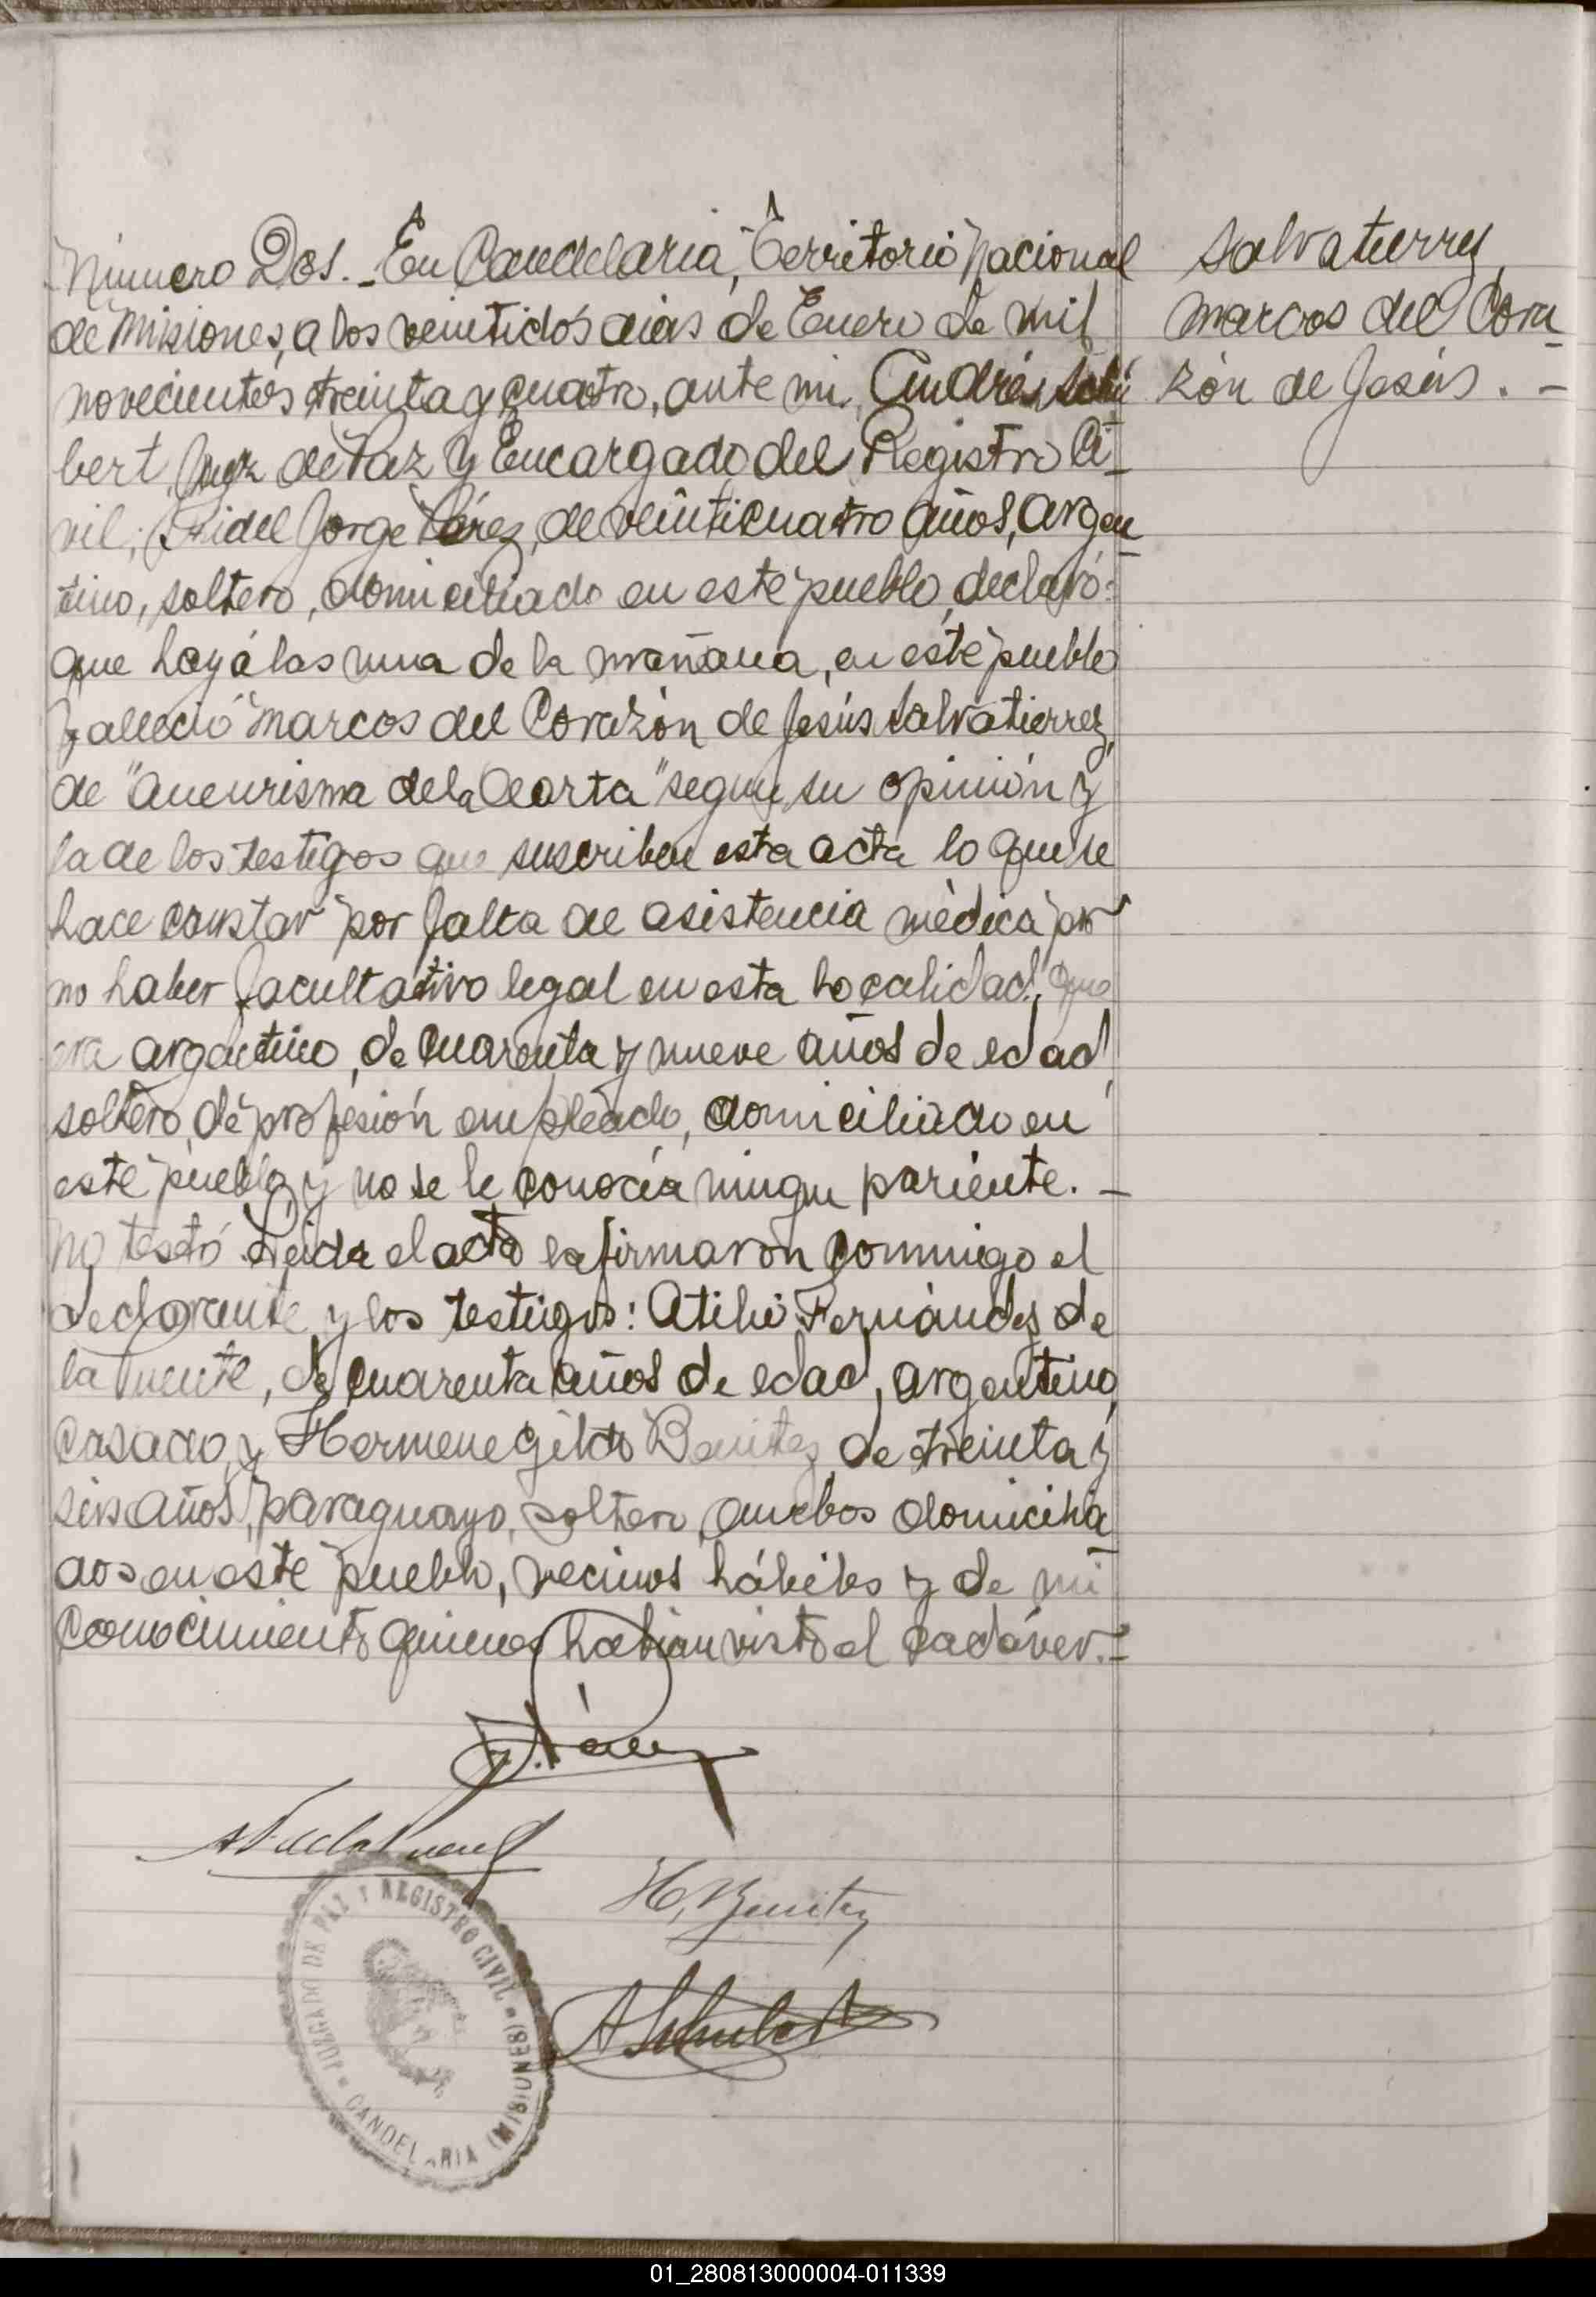 Número Dos.- En Candelaria, Territorio Nacional
de Misiones, a los veintidós dias de Enero de mil
novecientos treinta y cuatro, ante mi, Andrés Schu
bert, Juez de Paz y Encargado del Registro Ci-
vil; Fidel Jorge Párez, de veinticuatro años, argen-
tino, soltero, domiciliado en este pueblo, declaró:
que hoy á las una de la mañana, en este pueblo
falleció Marcos del Corazón de Jesús Salvatierrez,
de "Aneurisma de la Aorta" segun su opinión y
la de los testigos que suscriben esta acta lo que se
hace constar por falta de asistencia mèdica por
no haber facultativo legal en esta localidad, que
era argentino, de cuarenta y nueve años de edad,
soltero, de profesión empleado, domiciliado en
este pueblo y no se le conocía ningun pariente. -
No testó Leida el acta la firmaron conmigo el
declarante y los testigos: Atilio Fernández de
la Puente, de cuarenta años de edad, argentino,
casado, y Hermenegildo Benitez de treinta y
seis años, paraguayo, soltero, ambos domicilia-
dos en este pueblo, vecinos hábiles y de mi
conocimiento quienes habian visto el cadáver.-
Salvatierrez,
Marcos del Cora-
zón de Jesús. -
A F de la Puente
H. Benitez
A Schubert
JUZGADO DE PAZ Y REGISTRO CIVIL
CANDELARIA (MISIONES)
01_280813000004-011339